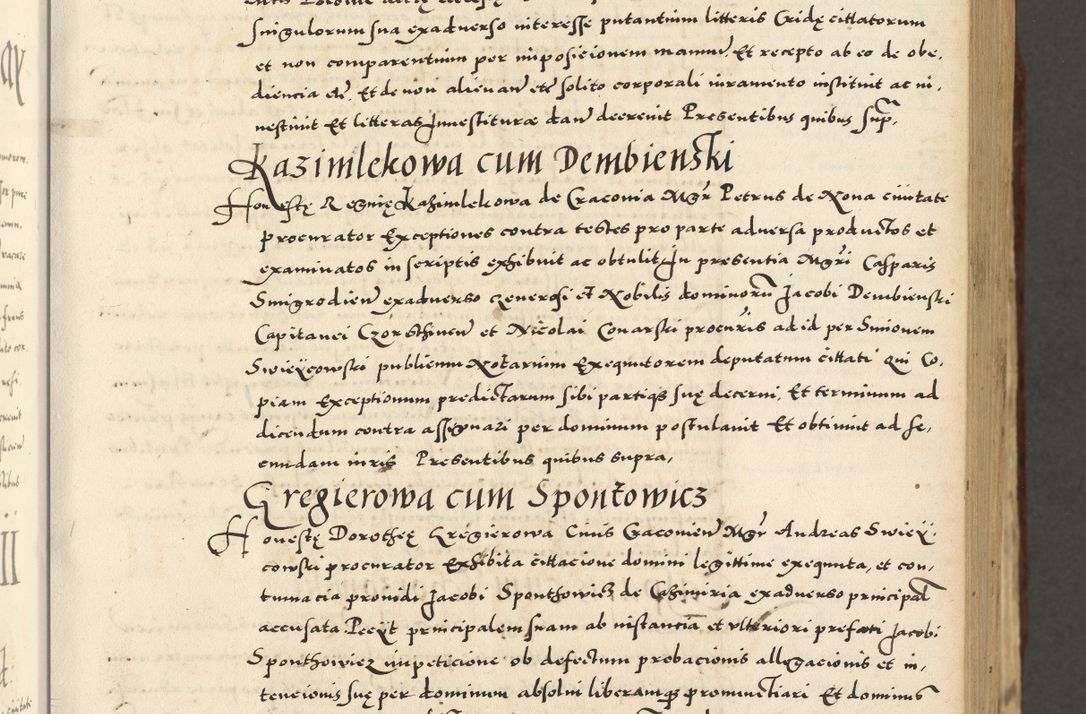 singulorum sua exadverso interesse putantium litteris Cridę cittatorum
et non comparentium per imposicionem manuu̅. Et recepto ab eo de obe,
diencia etc̅. Et de non alienan̅ etc̅ solito corporali iuramento instituit ac in,
vestiuit Et litteras Inuestituræ dan̅ decreuit Presentibus quibus sup̅,
Kazimlekowa cum Dembienski
Honestę Regnię Kazimlekowa de Cracouia Mgr̅ Petrus de Noua ciuitate
procurator Exceptiones contra testes pro parte aduersa productos et
examinatos in scriptis exhibuit ac obtulit In presentia Mgr̅i Casparis
Smigrodien̅ exadverso generosi et Nobilis dominoru̅ Jacobi Dembienski
Capitanei Czorsthinen̅ et Nicolai Conarski procuris ad id per Simonem
Swieÿcowski publicum Notarium Exequutorem deputatum cittati qui Co,
piam Exceptionum predictarum sibi partiqs suę decerni, Et terminum ad
dicendum contra assignari per dominum postulauit Et obtinuit ad se,
cundam iuris Presentibus quibus supra,
Gregierowa cum Spontowicz
Honestę Dorotheę Gregierowa Ciuis Cracouien̅ Mgr̅ Andreas Swieÿ,
cowski procurator Exhibita cittacione domini legittime exequuta, et con,
tumacia prouidi Jacobi Sponthowicz de Casimiria exadverso principal̅
accusata Peeÿt principalem suam ab instancia̅ et vlteriori prefati Jacobi
Sponthowicz impeticione ob defectum probacionis allegacionis et in,
tencionis suę per dominum absolui liberamqs pronunctiari Et dominus